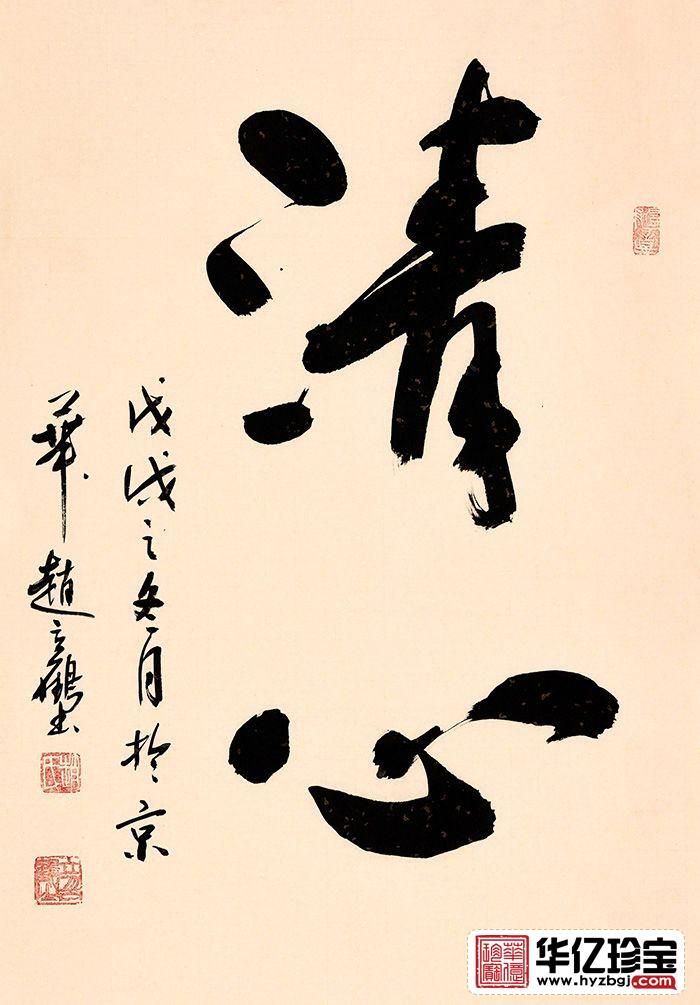 清心
戊戌之冬月於京
華趙立鶴书
华亿珍宝
www.hyzbgj.com